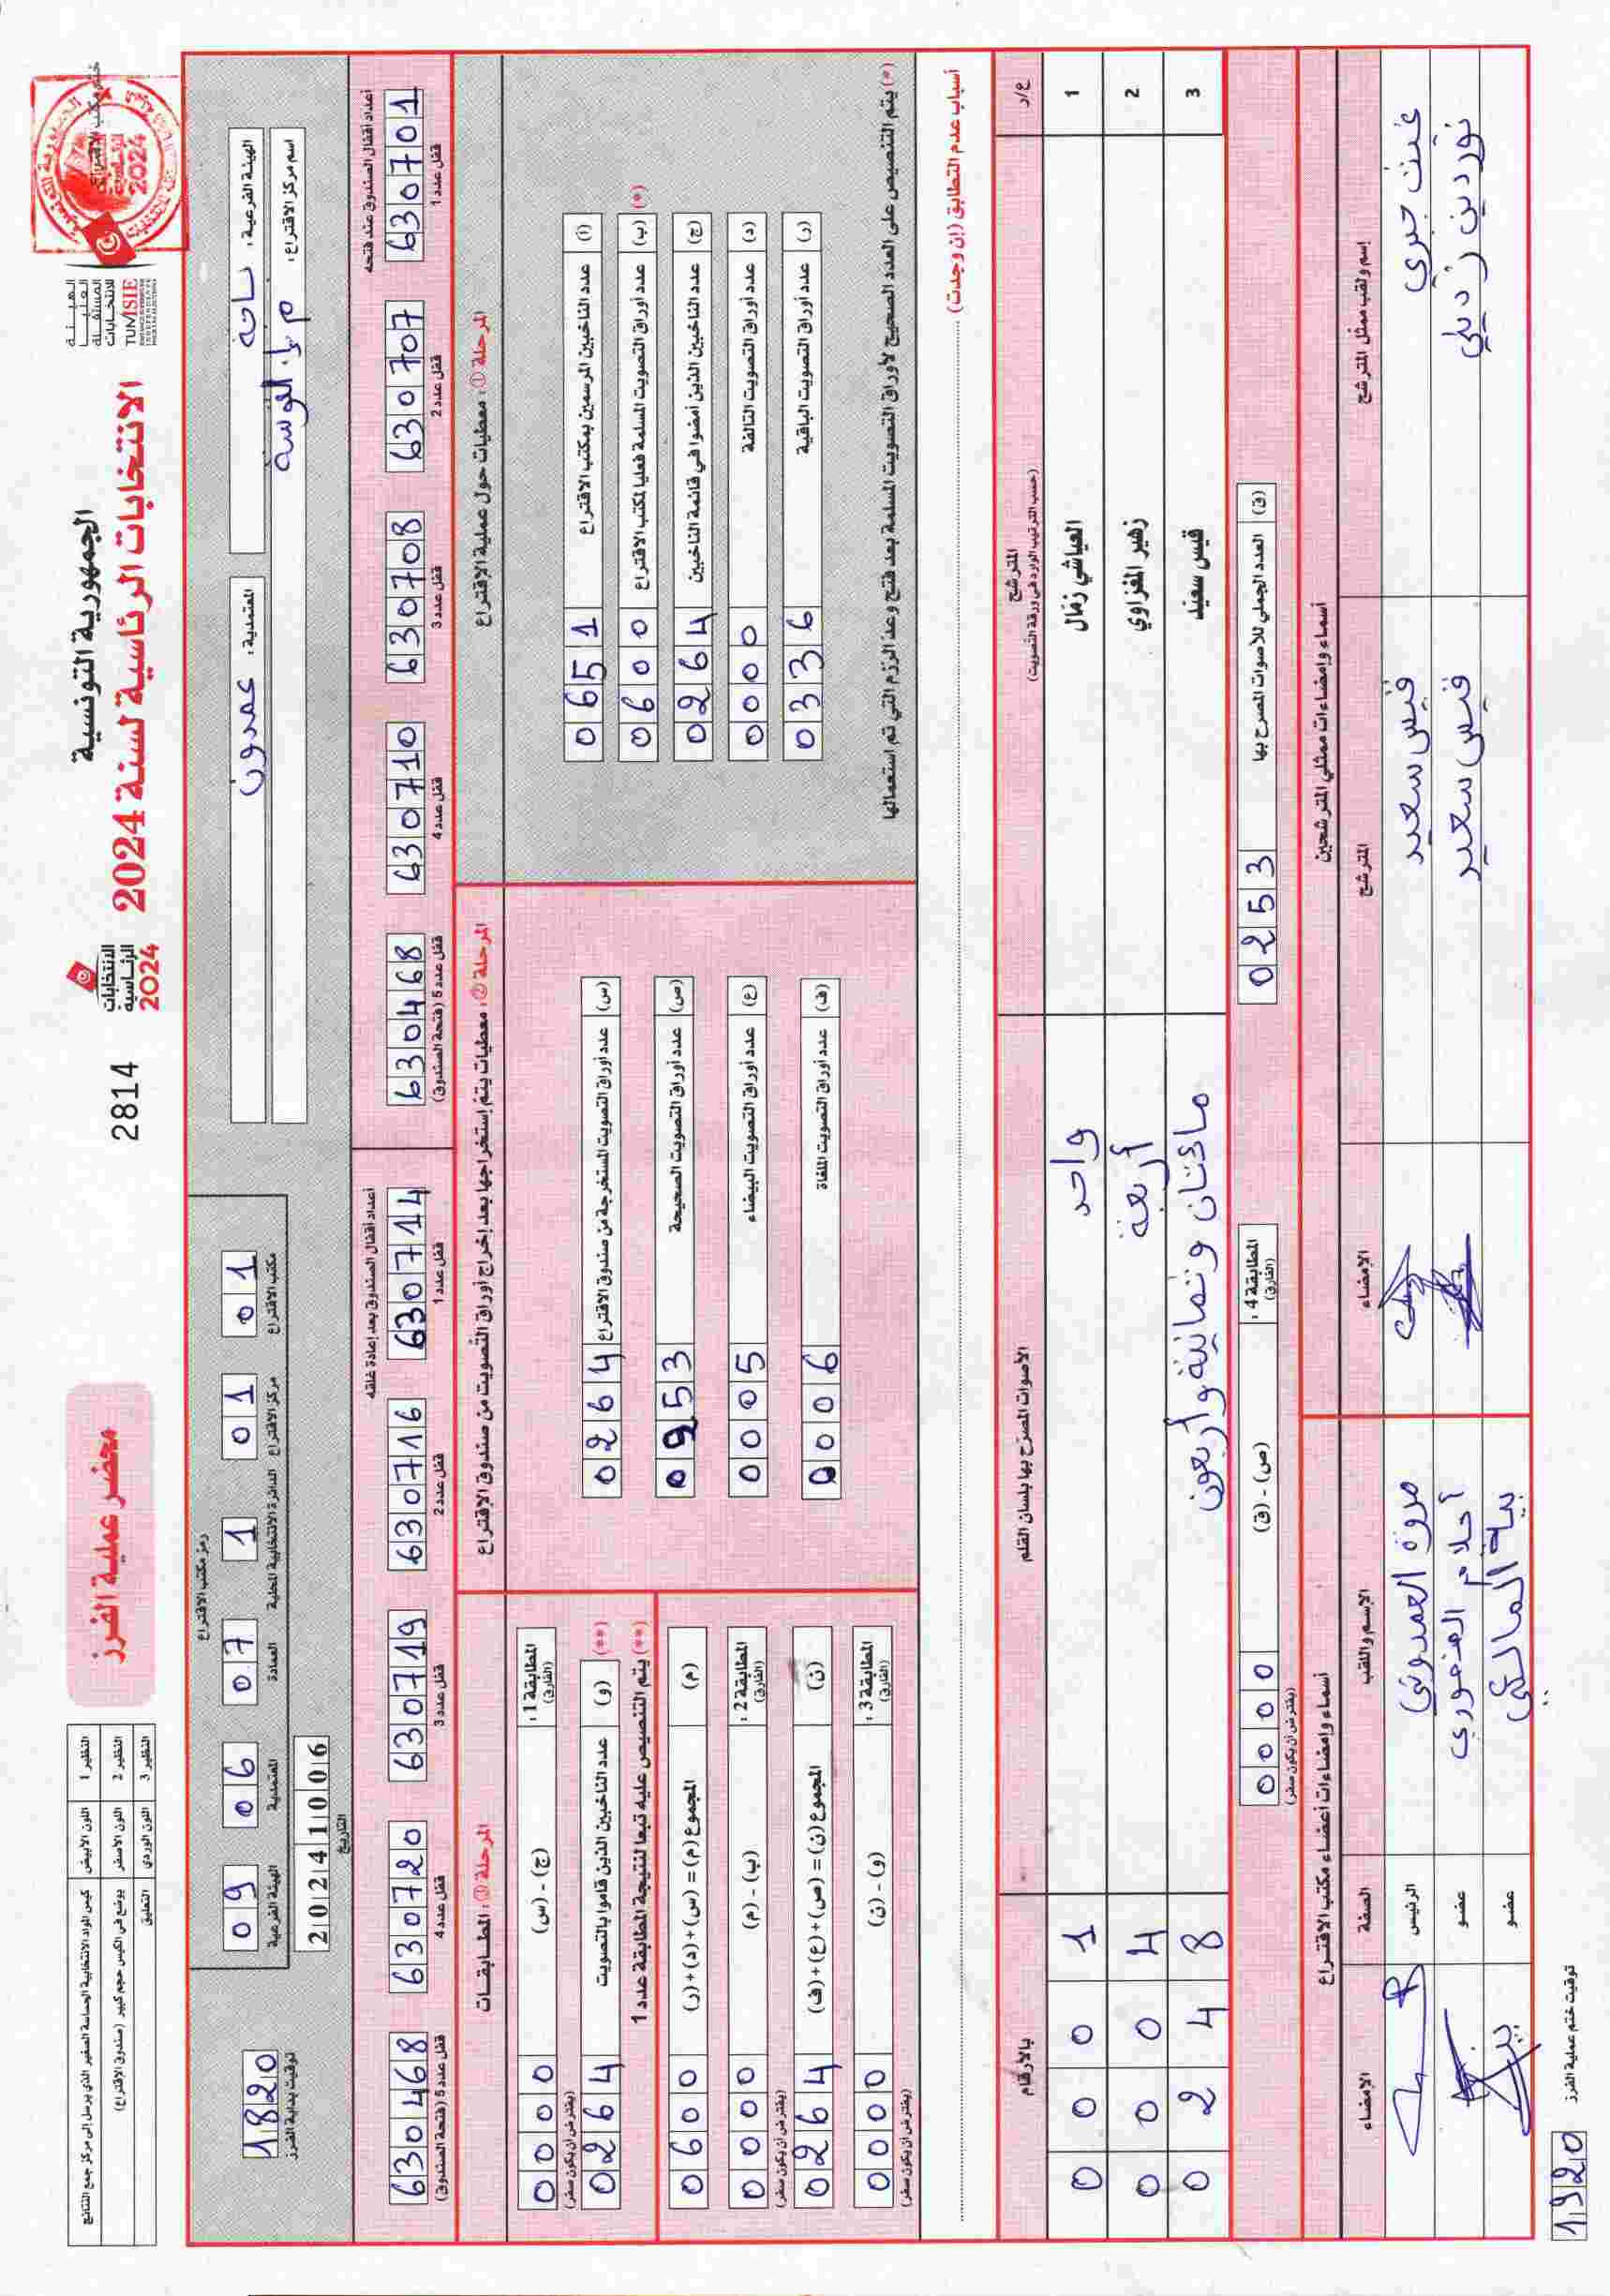 الجمهورية التونسية
الانتخابات الرئاسية لسنة 2024
الهيئة العليا المستقلة للانتخابات
TUNISIE
ختم مكتب الاقتراع
الانتخابات الرئاسية 2024
2814
محضر عملية الفرز
النظير 1 اللون الأبيض كيس المواد الانتخابية الحساسة الصغير الذي يرسل إلى مركز جمع النتائج
النظير 2 اللون الأصفر يوضع في الكيس حجم كبير (صندوق الاقتراع)
النظير 3 اللون الوردي التعليق
الهيئة الفرعية: باجة
المعتمدية: عمدون
اسم مركز الاقتراع:
رمز مكتب الاقتراع
01 01 1 07 06 09
مكتب الاقتراع مركز الاقتراع الدائرة الانتخابية المحلية العمادة المعتمدية الهيئة الفرعية
20241006
التاريخ
1820
توقيت بداية الفرز
أعداد أقفال الصندوق عند فتحه
630701 630707 630708 630710 630468
قفل عدد 1 قفل عدد 2 قفل عدد 3 قفل عدد 4 قفل عدد 5 (فتحة الصندوق)
أعداد أقفال الصندوق بعد إعادة غلقه
630714 630716 630719 630720 630468
قفل عدد 1 قفل عدد 2 قفل عدد 3 قفل عدد 4 قفل عدد 5 (فتحة الصندوق)
المرحلة ①: معطيات حول عملية الاقتراع
(أ) عدد الناخبين المرسمين بمكتب الاقتراع 0651
(*) (ب) عدد أوراق التصويت المسلمة فعليا لمكتب الاقتراع 0600
(ج) عدد الناخبين الذين أمضوا في قائمة الناخبين 0264
(د) عدد أوراق التصويت التالفة 0000
(ر) عدد أوراق التصويت الباقية 0336
(*) يتم التنصيص على العدد الصحيح لأوراق التصويت المسلمة بعد فتح وعد الرزم التي تم استعمالها
المرحلة ②: معطيات يتم إستخراجها بعد إخراج أوراق التصويت من صندوق الاقتراع
(س) عدد أوراق التصويت المستخرجة من صندوق الاقتراع 0264
(ص) عدد أوراق التصويت الصحيحة 0253
(ع) عدد أوراق التصويت البيضاء 0005
(ف) عدد أوراق التصويت الملغاة 0006
المرحلة ③: المطابقات
المطابقة 1: (الفارق) (ج) - (س) 0000
(يفترض أن يكون صفر)
(**) (و) عدد الناخبين الذين قاموا بالتصويت 0264
(**) يتم التنصيص عليه تبعا لنتيجة المطابقة عدد 1
(م) المجموع (م) = (س) + (د) + (ر) 0600
المطابقة 2: (الفارق) (ب) - (م) 0000
(يفترض أن يكون صفر)
(ن) المجموع (ن) = (ص) + (ع) + (ف) 0264
المطابقة 3: (الفارق) (و) - (ن) 0000
(يفترض أن يكون صفر)
أسباب عدم التطابق (إن وجدت)
ع/د المترشح (حسب الترتيب الوارد في ورقة التصويت) الأصوات المصرح بها بلسان القلم بالأرقام
1 العياشي زمّال واحد 0001
2 زهير المغزاوي أربعة 0004
3 قيس سعيّد مائتان وثمانية وأربعون 0248
(ق) العدد الجملي للأصوات المصرح بها 0253
المطابقة 4: (الفارق) (ص) - (ق) 0000
(يفترض أن يكون صفر)
أسماء وإمضاءات ممثلي المترشحين
إسم ولقب ممثل المترشح المترشح الإمضاء
قيس سعيد
نور دين قيس سعيد
أسماء وإمضاءات أعضاء مكتب الاقتراع
الإسم واللقب الصفة الإمضاء
مروة العمدوني الرئيس
أحلام عضو
بية المالكي عضو
توقيت ختم عملية الفرز
1920